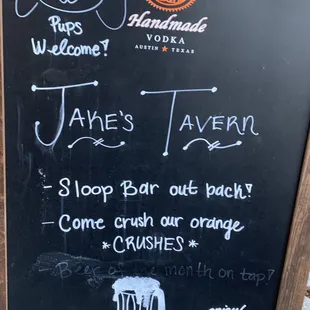 Pups
Welcome!
Handmade
VODKA
AUSTIN ★ TEXAS
JAKE'S TAVERN
- Sloop Bar out back!
- Come crush our orange
*CRUSHES*
- Beer of the month on tap?
enjoy!